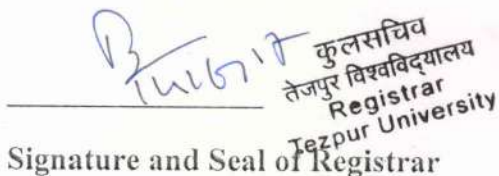 कुलसचिव
तेजपुर विश्वविद्यालय
Registrar
Tezpur University
Signature and Seal of Registrar